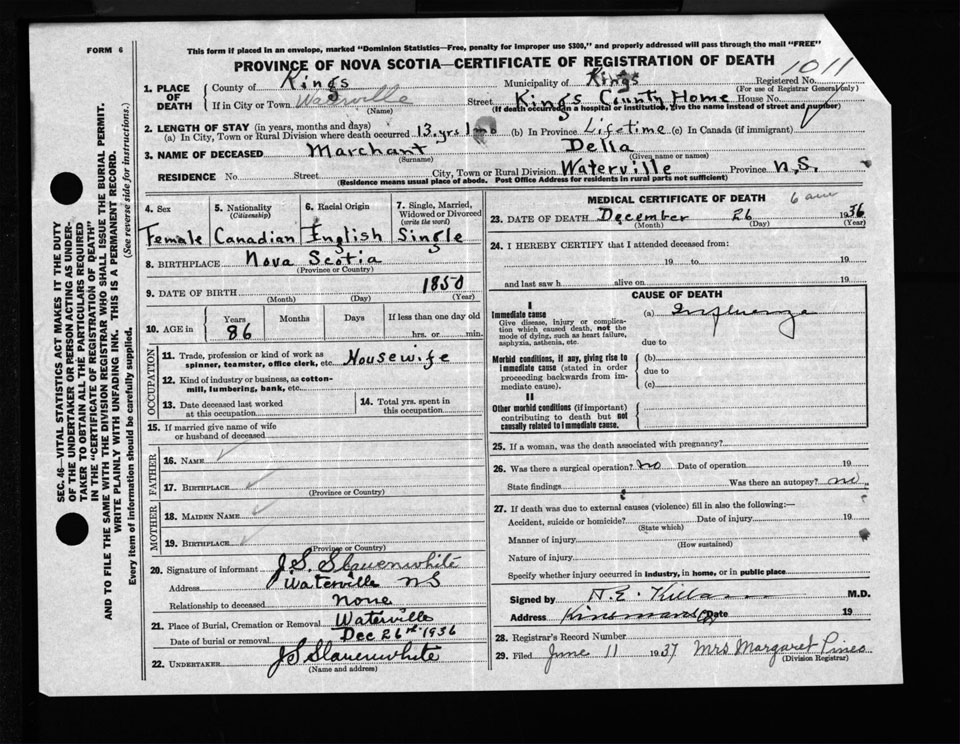 FORM 6
This form if placed in an envelope, marked "Dominion Statistics—Free, penalty for improper use $300," and properly addressed will pass through the mail "FREE"
PROVINCE OF NOVA SCOTIA—CERTIFICATE OF REGISTRATION OF DEATH
1. PLACE OF DEATH
County of Kings Municipality of Kings Registered No. 1011
(For use of Registrar General only)
If in City or Town Waterville Street Kings County Home House No.
(Name) (If death occurred in a hospital or institution, give the name instead of street and number)
2. LENGTH OF STAY (in years, months and days)
(a) In City, Town or Rural Division where death occurred 13 yrs 1 mo (b) In Province Lifetime (c) In Canada (if immigrant)
3. NAME OF DECEASED Marchant Della
(Surname) (Given name or names)
RESIDENCE No. Street City, Town or Rural Division Waterville Province N.S.
(Residence means usual place of abode. Post Office Address for residents in rural parts not sufficient)
4. Sex Female
5. Nationality (Citizenship) Canadian
6. Racial Origin English
7. Single, Married, Widowed or Divorced (write the word) Single
8. BIRTHPLACE Nova Scotia
(Province or Country)
9. DATE OF BIRTH 1850
(Month) (Day) (Year)
10. AGE in Years 86 Months Days If less than one day old
hrs. or min.
OCCUPATION
11. Trade, profession or kind of work as spinner, teamster, office clerk, etc. Housewife
12. Kind of industry or business, as cotton-mill, lumbering, bank, etc.
13. Date deceased last worked at this occupation
14. Total yrs. spent in this occupation
15. If married give name of wife or husband of deceased
FATHER
16. NAME
17. BIRTHPLACE
(Province or Country)
MOTHER
18. MAIDEN NAME
19. BIRTHPLACE
(Province or Country)
20. Signature of informant J.S. Slauenwhite
Address Waterville NS
Relationship to deceased none
21. Place of Burial, Cremation or Removal Waterville
Date of burial or removal Dec 26th 1936
22. UNDERTAKER J S Slauenwhite
(Name and address)
MEDICAL CERTIFICATE OF DEATH 6 am
23. DATE OF DEATH December 26 1936
(Month) (Day) (Year)
24. I HEREBY CERTIFY that I attended deceased from:
19 to 19
and last saw h alive on 19
CAUSE OF DEATH
I
Immediate cause (a) Influenza
Give disease, injury or complication which caused death, not the mode of dying, such as heart failure, asphyxia, asthenia, etc.
due to
Morbid conditions, if any, giving rise to immediate cause (stated in order proceeding backwards from immediate cause).
(b)
due to
(c)
II
Other morbid conditions (if important) contributing to death but not causally related to immediate cause.
25. If a woman, was the death associated with pregnancy?
26. Was there a surgical operation? no Date of operation 19
State findings Was there an autopsy? no
27. If death was due to external causes (violence) fill in also the following:—
Accident, suicide or homicide? Date of injury 19
(State which)
Manner of injury
(How sustained)
Nature of injury
Specify whether injury occurred in industry, in home, or in public place
Signed by M.D.
Address Date 19
28. Registrar's Record Number
29. Filed June 11 1937 Mrs Margaret Pineo
(Division Registrar)
SEC. 46—VITAL STATISTICS ACT MAKES IT THE DUTY
OF THE UNDERTAKER OR PERSON ACTING AS UNDER-
TAKER TO OBTAIN ALL THE PARTICULARS REQUIRED
IN THE "CERTIFICATE OF REGISTRATION OF DEATH"
AND TO FILE THE SAME WITH THE DIVISION REGISTRAR WHO SHALL ISSUE THE BURIAL PERMIT.
WRITE PLAINLY WITH UNFADING INK. THIS IS A PERMANENT RECORD.
Every item of information should be carefully supplied. (See reverse side for instructions.)